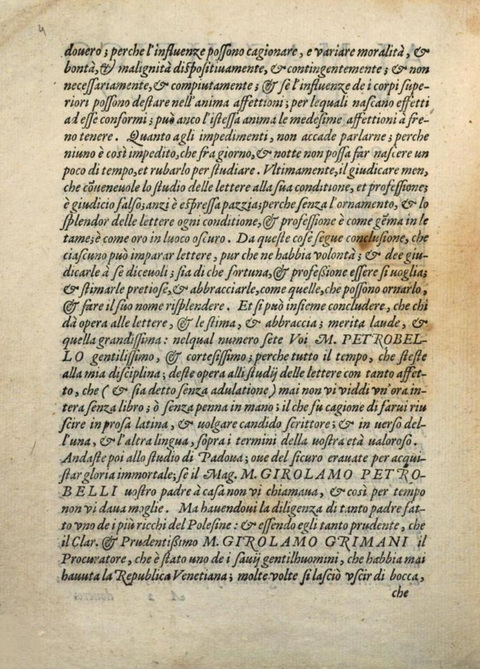 4
douero; perche l'influenze possono cagionare, e variare moralità, &
bontà, & malignità dispositiuamente, & contingentemente; & non
necessariamente, & compiutamente; & se l'influenze de i corpi supe-
riori possono destare nell'anima affettioni; per lequali nascano effetti
ad esse conformi; può anco l'istessa anima le medesime affettioni à fre-
no tenere. Quanto agli impedimenti, non accade parlarne; perche
niuno è così impedito, che fra giorno, & notte non possa far nascere un
poco di tempo, et rubarlo per studiare. Vltimamente, il giudicare men,
che cõueneuole lo studio delle lettere alla sua conditione, et professione;
è giudicio falso; anzi è espressa pazzia; perche senza l'ornamento, & lo
splendor delle lettere ogni conditione, & professione è come gẽma in le
tame; è come oro in luoco oscuro. Da queste cose segue conclusione, che
ciascuno può imparar lettere, pur che ne habbia volontà; & dee giu-
dicarle à se diceuoli; sia di che fortuna, & professione essere si uoglia;
& stimarle pretiose, & abbracciarle, come quelle, che possono ornarlo,
& fare il suo nome risplendere. Et si può insieme concludere, che chi
dà opera alle lettere, & le stima, & abbraccia; merita laude, &
quella grandissima: nelqual numero sete Voi M. PETROBEL-
LO gentilissimo, & cortesissimo; perche tutto il tempo, che steste
alla mia disciplina; deste opera alli studij delle lettere con tanto affet-
to, che ( & sia detto senza adulatione) mai non vi viddi vn'ora in-
tera senza libro; ò senza penna in mano; il che fu cagione di farui riu
scire in prosa latina, & uolgare candido scrittore; & in verso del-
l'una, & l'altra lingua, sopra i termini della vostra età valoroso.
Andaste poi allo studio di Padoua; oue del sicuro erauate per acqui-
star gloria immortale; se il Mag. M. GIROLAMO PETRO-
BELLI uostro padre à casa non vi chiamaua, & così per tempo
non vi daua moglie. Ma hauendoui la diligenza di tanto padre fat-
to vno de i più ricchi del Polesine: & essendo egli tanto prudente, che
il Clar. & Prudentißimo M. GIROLAMO GRIMANI il
Procuratore, che è stato uno de i sauij gentilhuomini, che habbia mai
hauuta la Republica Venetiana; molte volte si lasciò vscir di bocca,
che